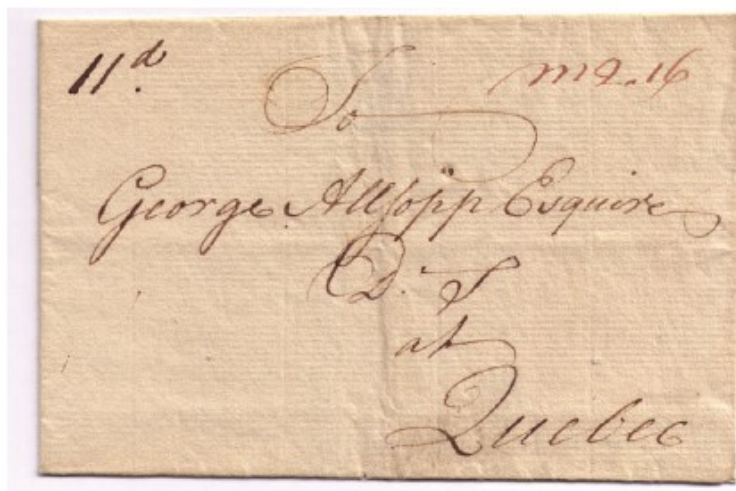 11d.
m2.16
To
George Allsopp Esquire
D. S
at
Quebec